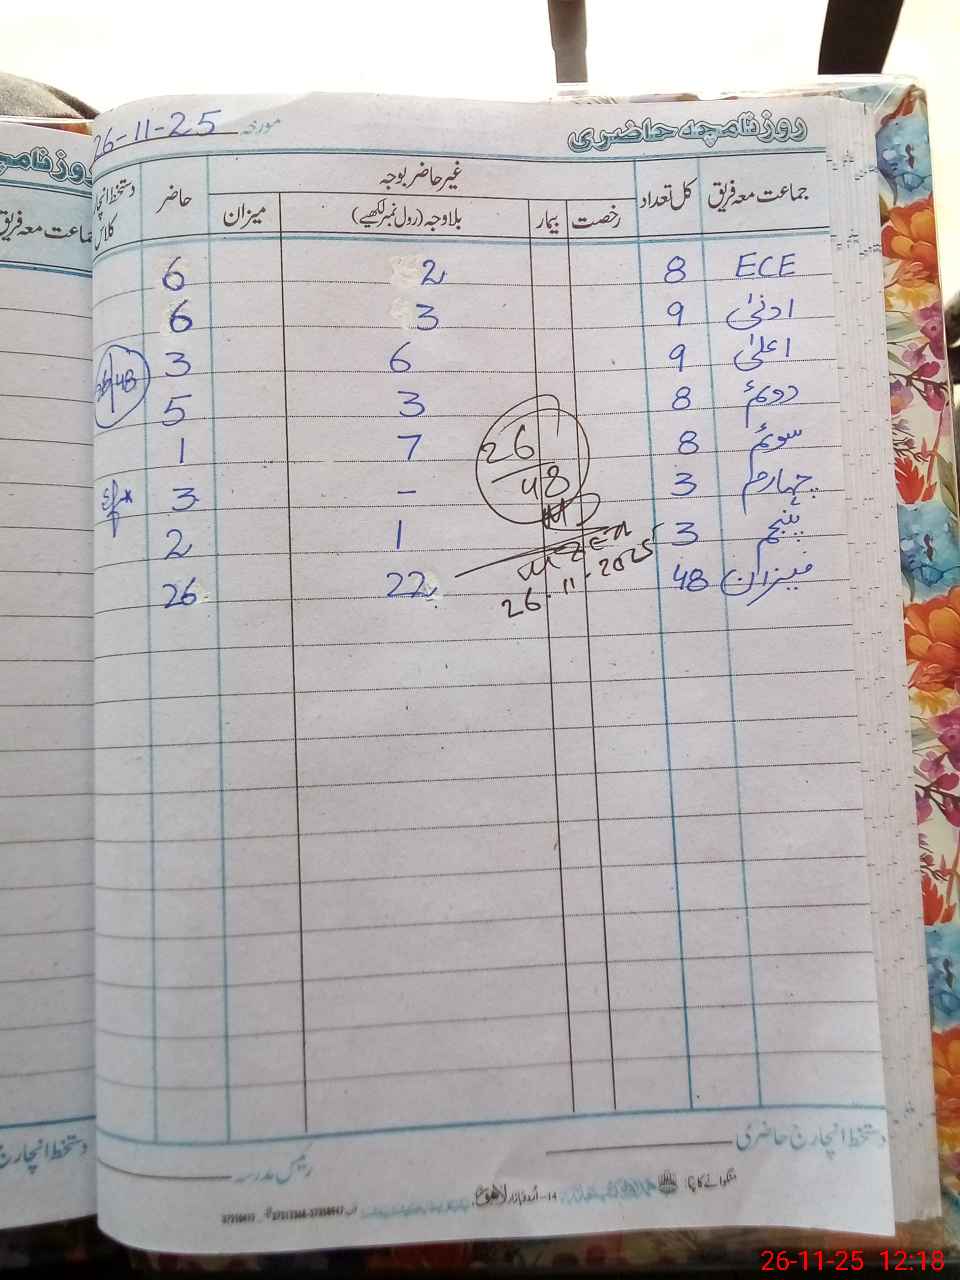 روزنامچہ حاضری مورخہ 26-11-25
جماعت معہ فریق کل تعداد غیر حاضر بوجہ حاضر دستخط انچارج کلاس
رخصت بیمار بلاوجہ (رول نمبر لکھیے) میزان
ECE 8 2 6
ادنیٰ 9 3 6
اعلیٰ 9 6 3
48
دوئم 8 3 5
سوئم 8 7 1
26
48
چہارم 3 - 3
پنجم 3 1 2
میزان 48 22 26
26.11.2025
دستخط انچارج حاضری
رئیس مدرسہ
منگوانے کا پتہ:
14-اُردو بازار لاہور
روزنامچہ
جماعت معہ فریق
دستخط انچارج
26-11-25 12:18